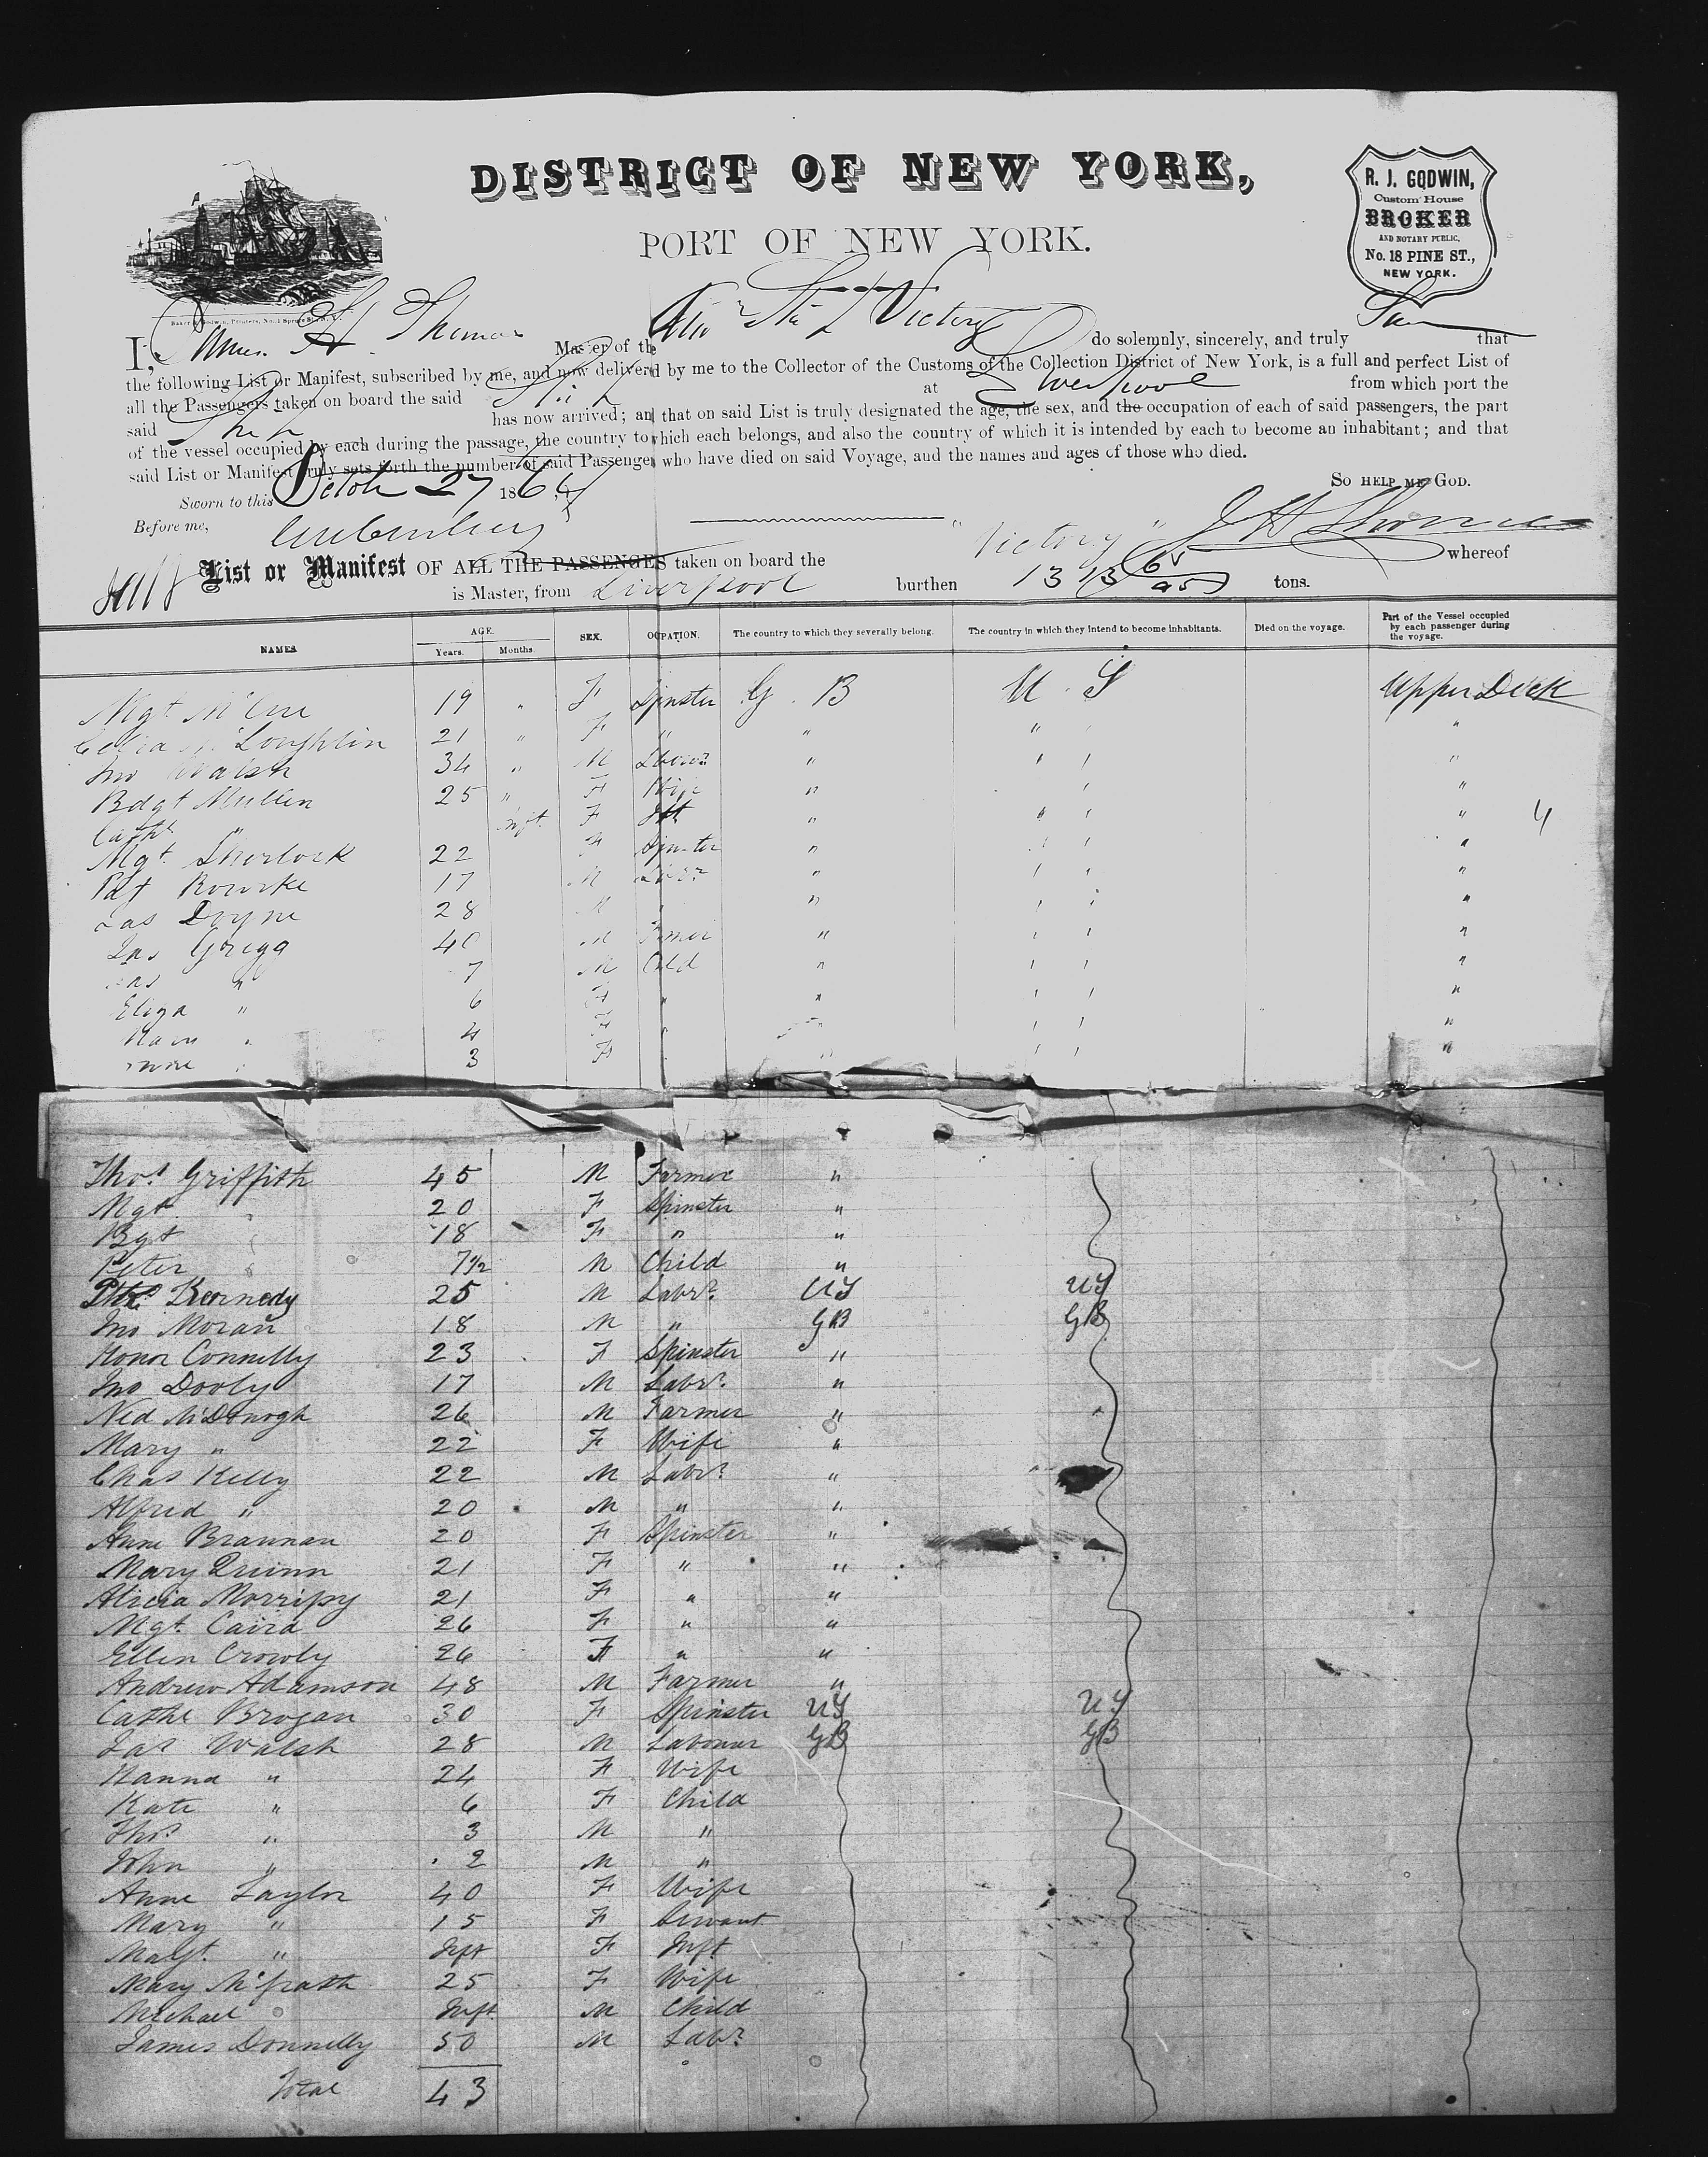 DISTRICT OF NEW YORK,
PORT OF NEW YORK.
R. J. GODWIN,
Custom House
BROKER
AND NOTARY PUBLIC,
No. 18 PINE ST.,
NEW YORK.
Baker & Godwin, Printers, No. 1 Spruce St., N. Y.
I, James H. Thomas Master of the Victory do solemnly, sincerely, and truly that
the following List or Manifest, subscribed by me, and now delivered by me to the Collector of the Customs of the Collection District of New York, is a full and perfect List of
all the Passengers taken on board the said Ship at Liverpool from which port the
said Ship has now arrived; and that on said List is truly designated the age, the sex, and the occupation of each of said passengers, the part
of the vessel occupied by each during the passage, the country to which each belongs, and also the country of which it is intended by each to become an inhabitant; and that
said List or Manifest truly sets forth the number of said Passengers who have died on said Voyage, and the names and ages of those who died.
So HELP ME GOD.
Sworn to this October 27 186
Before me,
J H Thomas
List or Manifest OF ALL THE PASSENGES taken on board the "Victory" whereof
is Master, from Liverpool burthen 1313 65/95 tons.
NAMES. AGE. Years. Months. SEX. OCPATION. The country to which they severally belong. The country in which they intend to become inhabitants. Died on the voyage. Part of the Vessel occupied by each passenger during the voyage.
Mgt 19 " F Spinster G. B U. S Upper Deck
McLoughlin 21 " F " " " "
Jno Walsh 34 " M Labor " ' ' "
Bdgt Mullin 25 " F Wife " ' "
Cathe " Inft F Inft " " ' " 4
Mgt Sherlock 22 F Spinster " ' ' "
Pat Rourke 17 M Labr " ' ' "
Jas Doyne 28 M " ' ' "
Jas Gregg 40 M Farmer " ' ' "
Jas " 7 M Child " ' ' "
Eliza " 6 F " " ' ' "
4 F ' ' "
3 F " ' ' "
Thos Griffith 45 M Farmer "
Mgt " 20 F Spinster "
Bgt " 18 F " "
Peter " 7 1/2 M Child "
Kennedy 25 M Labr US US
Jno Moran 18 M " GB GB
Honor Connelly 23 F Spinster "
Jno Dooly 17 M Labr "
Ned McDonogh 26 M Farmer "
Mary " 22 F Wife "
Chas Kelly 22 M Labr "
Alfred " 20 M " "
Anne Brannan 20 F Spinster "
Mary Quinn 21 F " "
Alicia Morrissy 21 F " "
Mgt Caird 26 F " "
Ellen Crowly 26 F " "
Andrew Adamson 48 M Farmer "
Cathe Brogan 30 F Spinster US US
Jas Walsh 28 M Labourer GB GB
Hanna " 24 F Wife
Kate " 6 F Child
Thos " 3 M "
John " 2 M "
Anne Taylor 40 F Wife
Mary " 15 F Servant
Magt " Inft F Inft
Mary McGrath 25 F Wife
Michael Inft M Child
James Donnelly 50 M Labr
Total 43